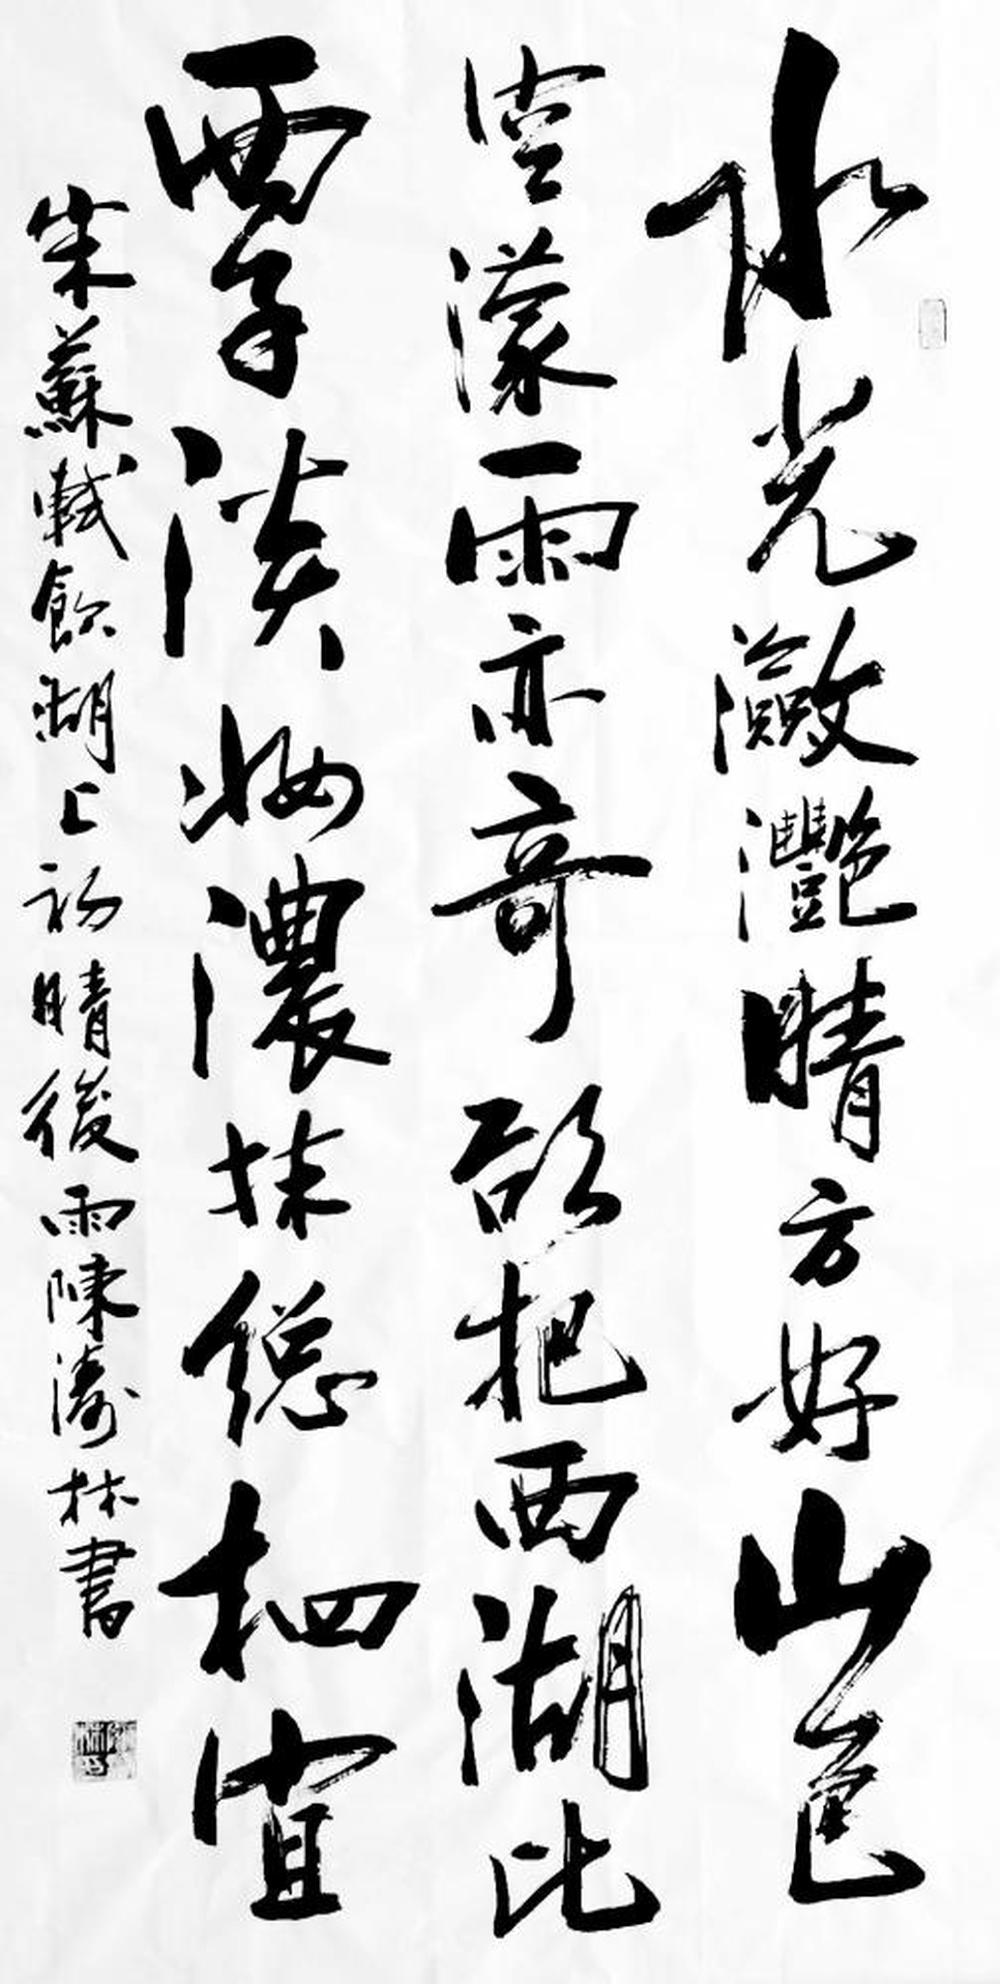 水光瀲灧晴方好山色
空濛雨亦奇欲把西湖比
西子淡妝濃抹総相宜
宋蘇軾飲湖上初晴後雨陳涛林書